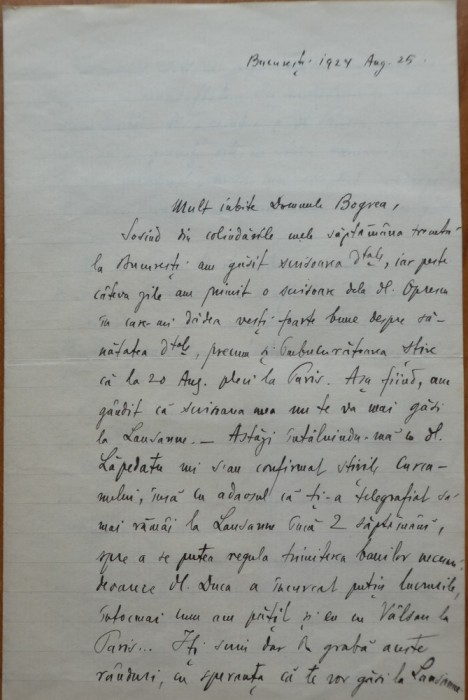 București 1924 Aug. 25.
Mult iubite Domnule Bogrea,
Sosind din colindările mele săptămâna trecută
la București am găsit scrisoarea dtale, iar peste
câteva zile am primit o scrisoare dela dl. Oprescu
în care-mi dădea vești foarte bune despre să-
nătatea dtale, precum și îmbucurătoarea știre
că la 20 Aug. pleci la Paris. Așa fiind, am
gândit că scrisoarea mea nu te va mai găsi
la Lausanne. — Astăzi întâlnindu-mă cu dl.
Lăpedatu mi s'au confirmat știrile
însă cu adaosul că ți-a telegrafiat să
mai rămâi la Lausanne încă 2 săptămâni,
spre a se putea regula trimiterea banilor
deoarece dl. Duca a încurcat puțin lucrurile,
întocmai cum am pățit și eu cu Vâlsan la
Paris... Îți scriu dar în grabă aceste
rânduri, cu speranța că te vor găsi la Lausanne